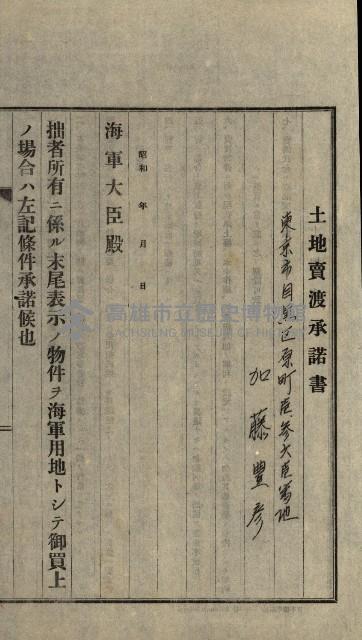 土地賣渡承諾書
東京市目黒区原町壱参六壱番地
加藤豊彦
昭和 年 月 日
海軍大臣殿
拙者所有ニ係ル末尾表示ノ物件ヲ海軍用地トシテ御買上
ノ場合ハ左記條件承諾候也
高雄市立歷史博物館
KAOHSIUNG MUSEUM OF HISTORY